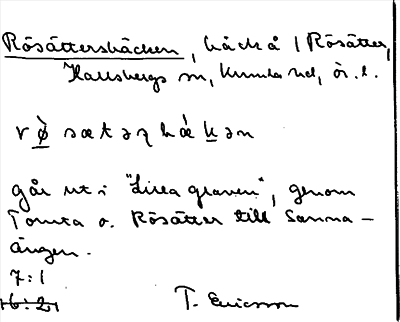 Rösättersbäcken, bäck å / Rösätter,
Hallsbergs sn, Kumla hd, ör. l.
rø̀sætəɳbákən
går ut i "Lilla graven", genom
Tomta o. Rösätter till Sanna-
ängen.
7:1
16:21
T. Ericsson